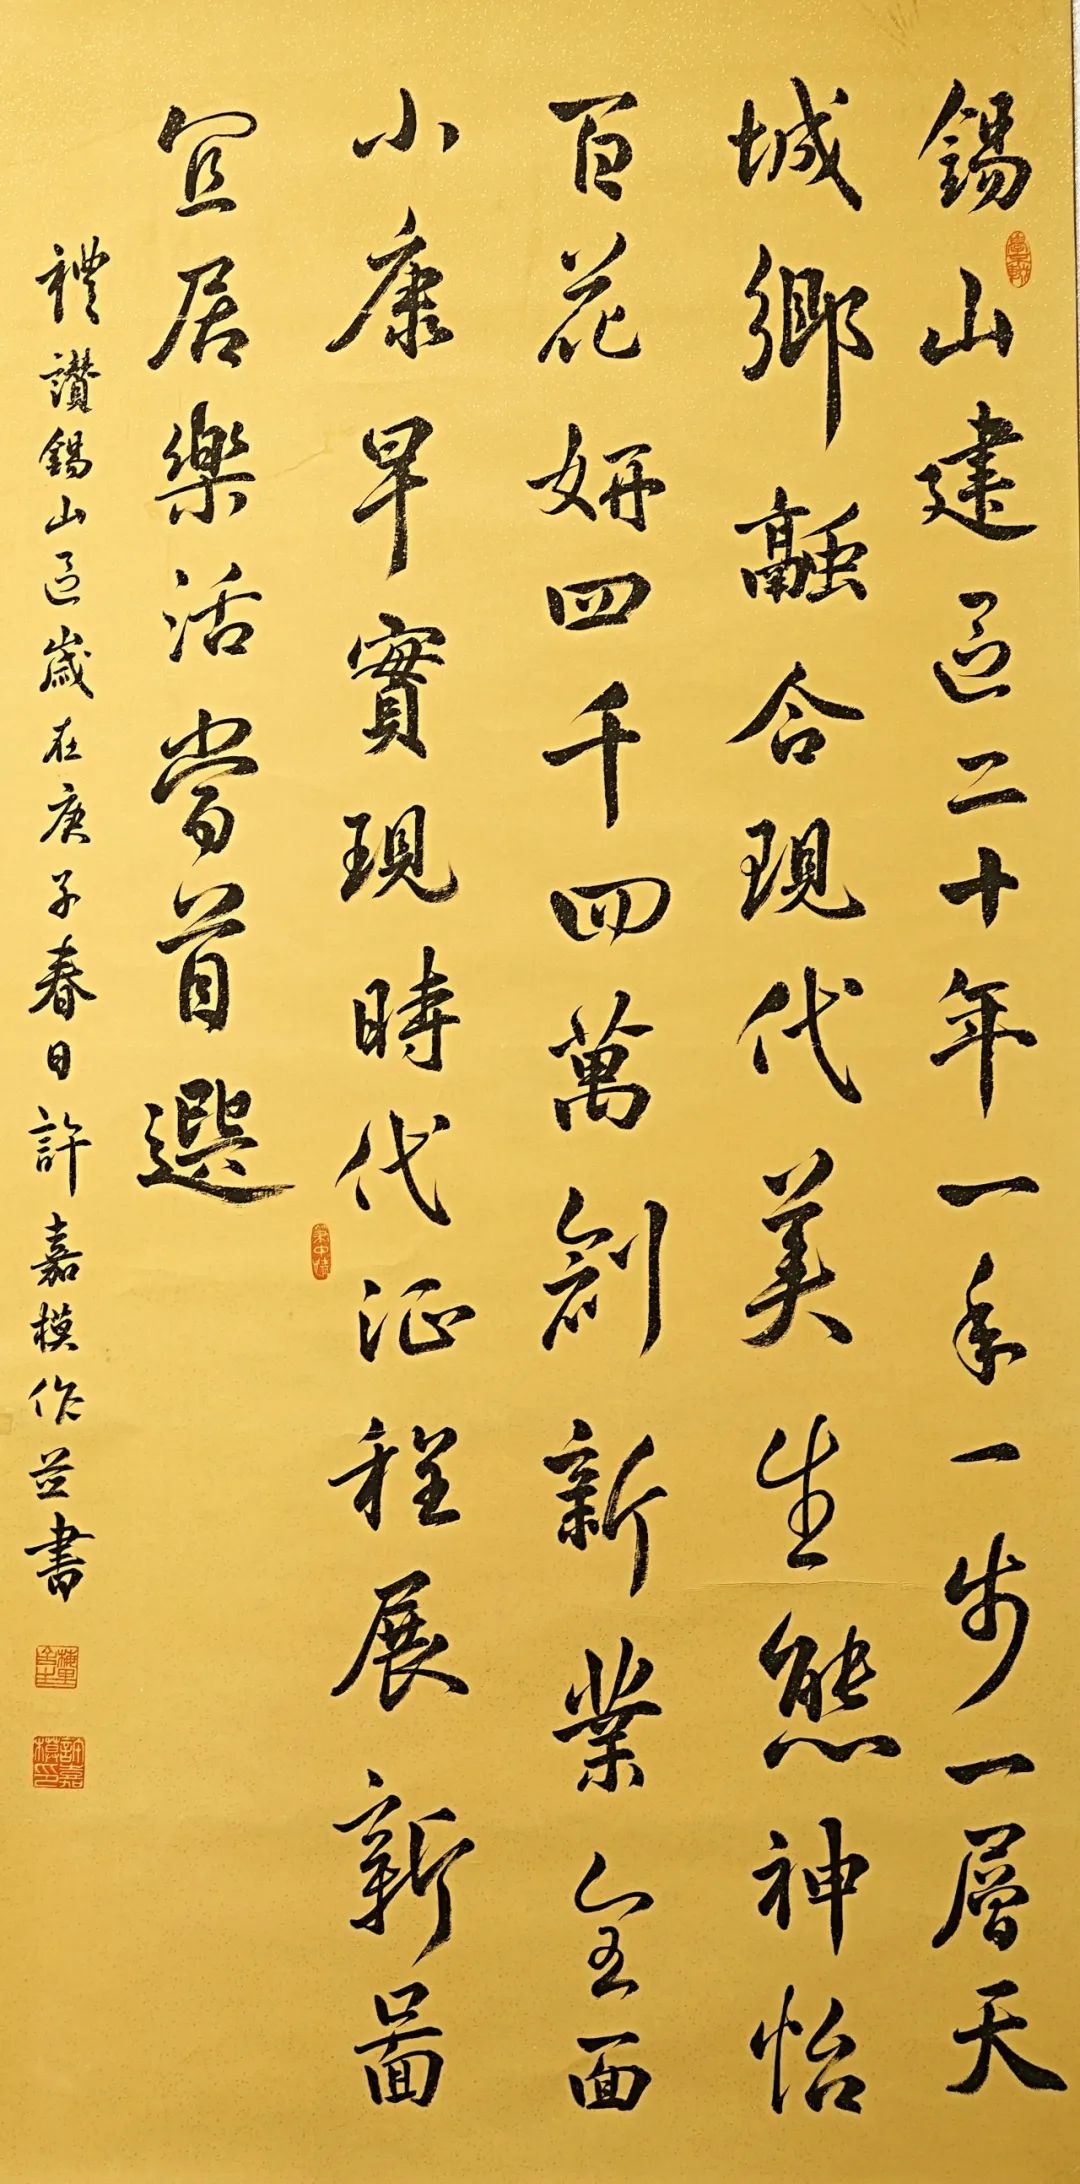 錫山建區二十年一年一步一層天
城鄉融合現代美生態神怡
百花妍四千四萬創新業全面
小康早實現時代征程展新圖
宜居樂活當首選
禮讚錫山區歲在庚子春日許嘉模作並書
許嘉模印